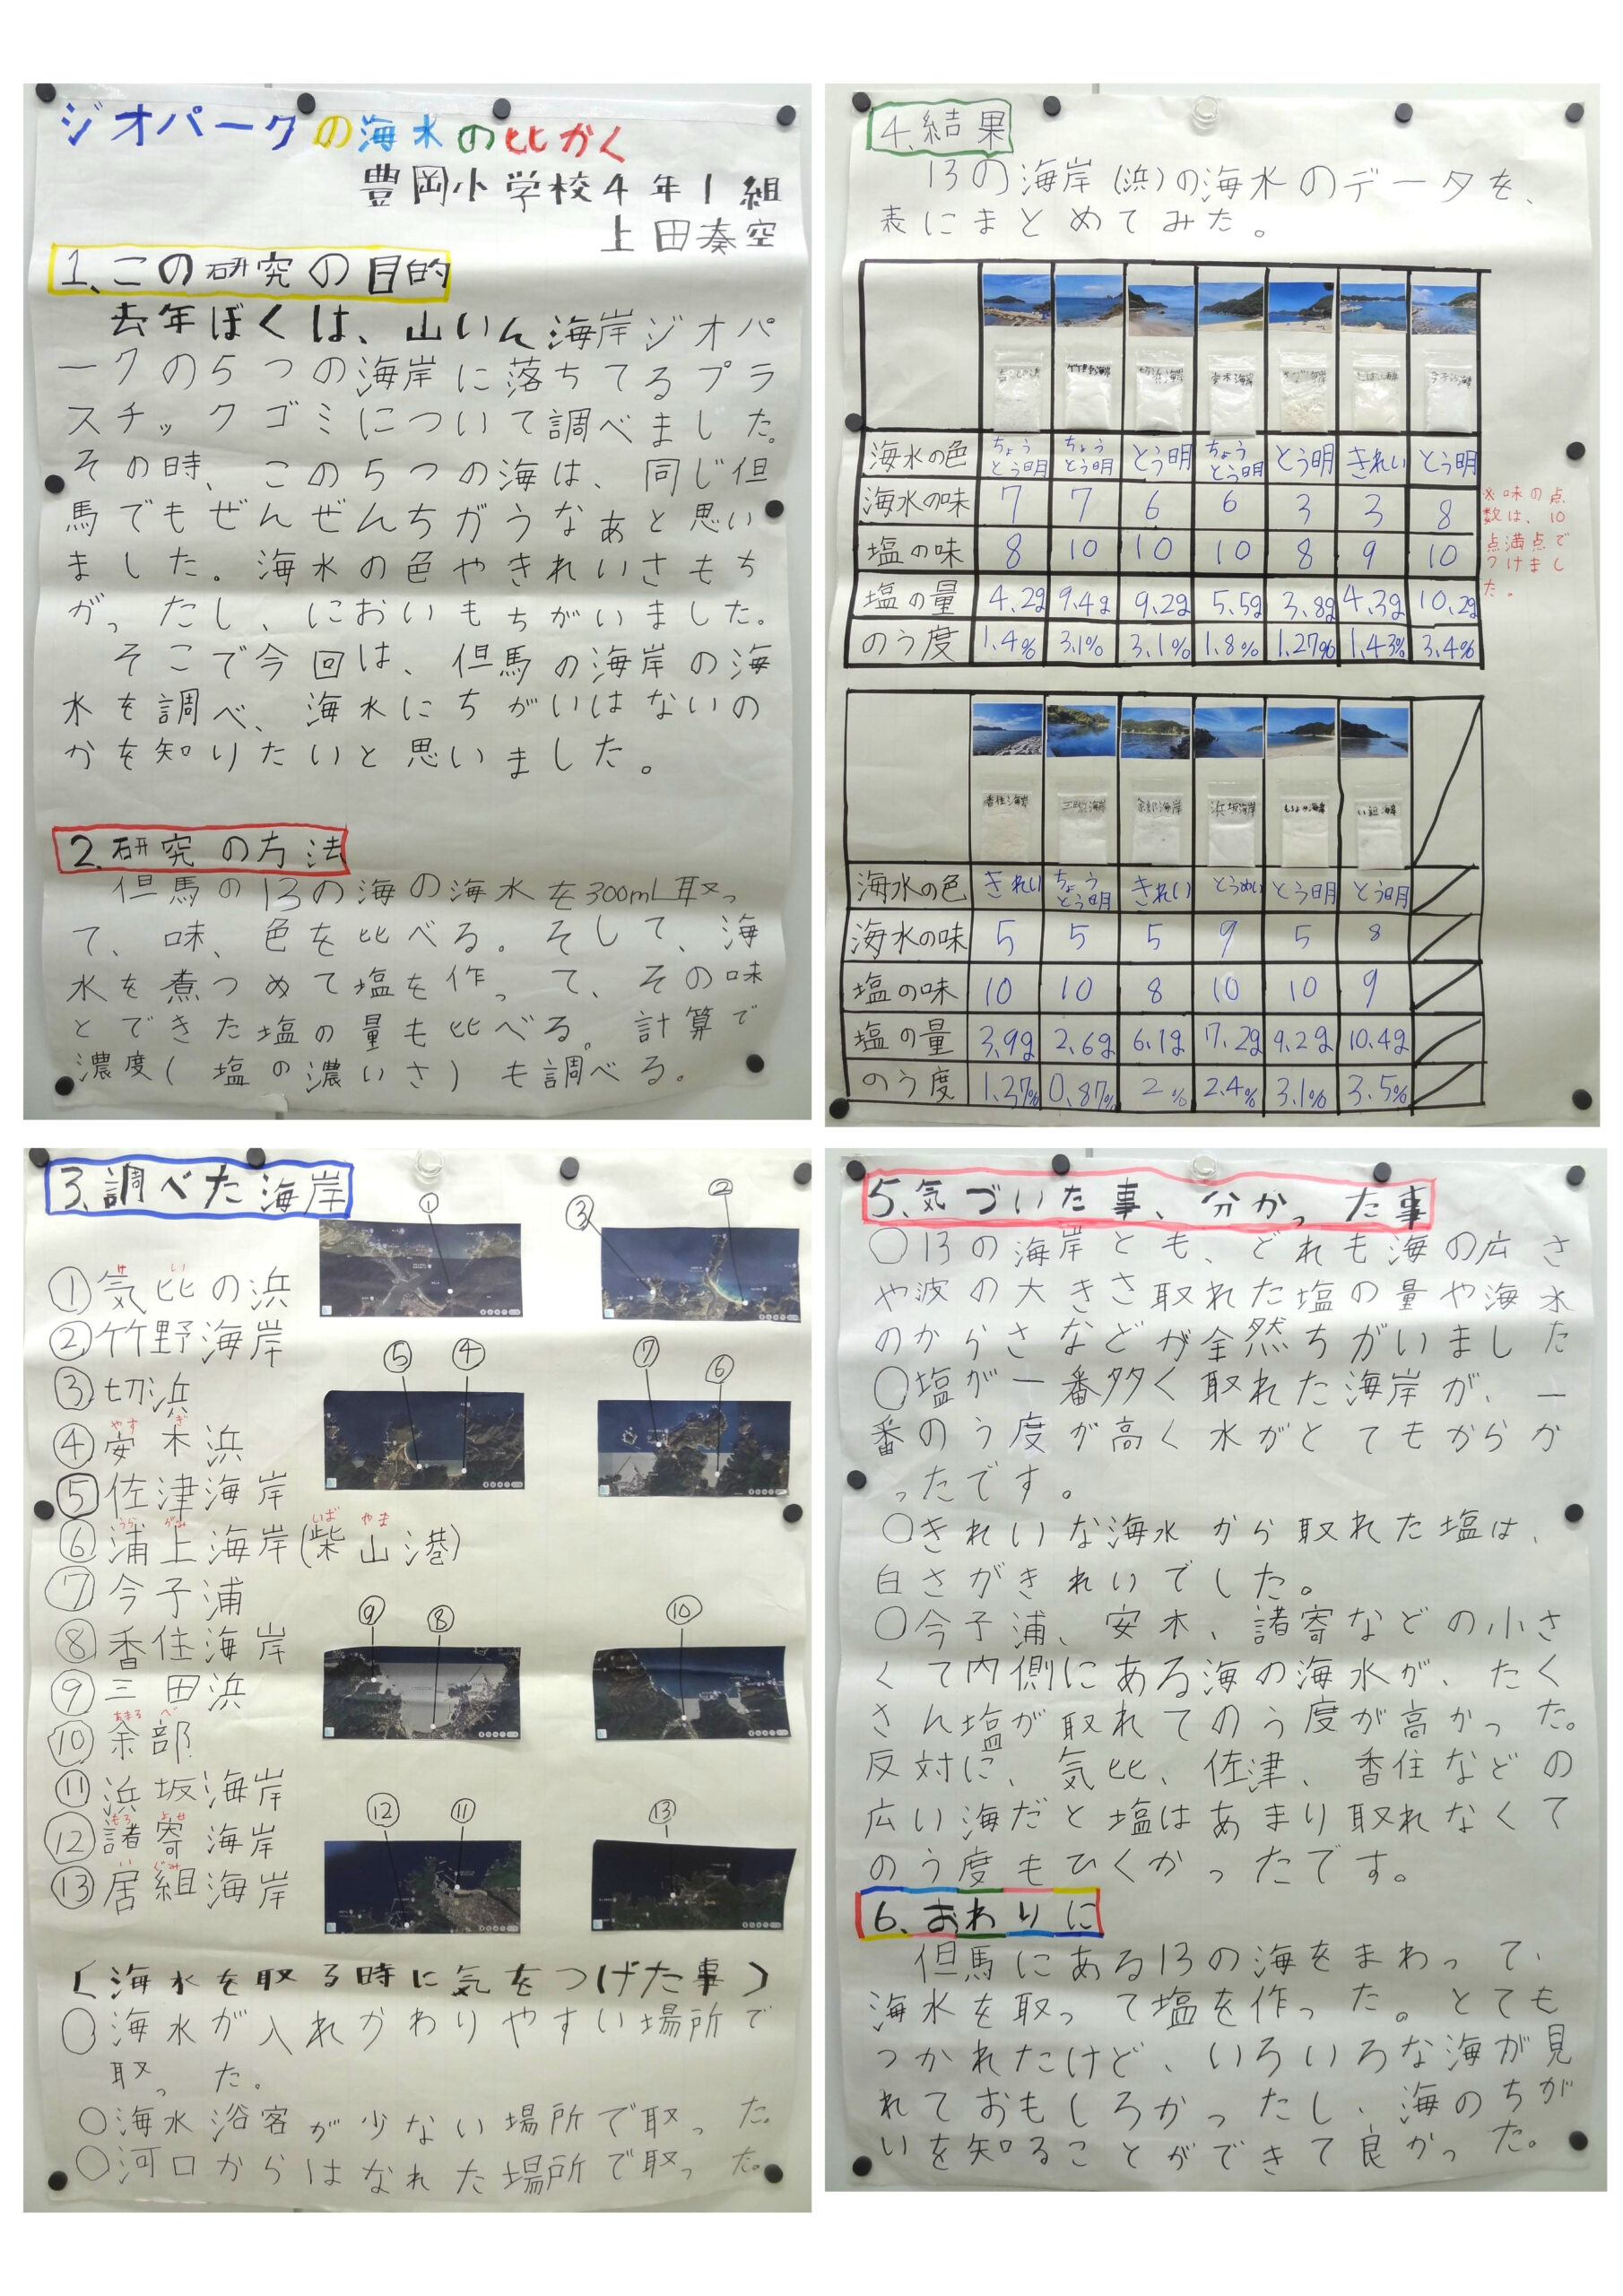 ジオパークの海水の比かく
豊岡小学校4年1組
上田奏空
1.この研究の目的
去年ぼくは、山いん海岸ジオパ
ークの5つの海岸に落ちてるプラ
スチックゴミについて調べました。
その時、この5つの海は、同じ但
馬でもぜんぜんちがうなぁと思い
ました。海水の色やきれいさもち
がったし、においもちがいました。
そこで今回は、但馬の海岸の海
水を調べ、海水にちがいはないの
かを知りたいと思いました。
2.研究の方法
但馬の13の海の海水を300mL取っ
て、味、色を比べる。そして、海
水を煮つめて塩を作って、その味
とできた塩の量も比べる。計算で
濃度(塩の濃いさ)も調べる。
3.調べた海岸
①気比の浜
②竹野海岸
③切浜
④安木浜
やす ぎ
⑤佐津海岸
⑥浦上海岸(柴山港)
⑦今子浦
⑧香住海岸
⑨三田浜
⑩余部
あまる べ
⑪浜坂海岸
⑫諸寄海岸
もろ よせ
⑬居組海岸
い ぐみ
① ③ ②
⑤ ④ ⑦ ⑥
⑨ ⑧ ⑩
⑫ ⑪ ⑬
(海水を取る時に気をつけた事)
○海水が入れかわりやすい場所で
取った。
○海水浴客が少ない場所で取った。
○河口からはなれた場所で取った。
4.結果
13の海岸(浜)の海水のデータを、
表にまとめてみた。
海水の色 ちょうとう明 ちょうとう明 とう明 ちょうとう明 とう明 きれい とう明
海水の味 7 7 6 6 3 3 8
塩の味 8 10 10 10 8 9 10
塩の量 4.2g 9.4g 9.2g 5.5g 3.8g 4.3g 10.2g
のう度 1.4% 3.1% 3.1% 1.8% 1.27% 1.43% 3.4%
※味の点
数は、10
点満点で
つけまし
た。
香住海岸 三田浜海岸 余部海岸 浜坂海岸
海水の色 きれい ちょうとう明 きれい とうめい とう明 とう明
海水の味 5 5 5 9 5 8
塩の味 10 10 8 10 10 9
塩の量 3.9g 2.6g 6.1g 7.2g 9.2g 10.4g
のう度 1.37% 0.87% 2% 2.4% 3.1% 3.5%
5.気づいた事、分かった事
○13の海岸とも、どれも海の広さ
や波の大きさ取れた塩の量や海水
のからさなどが全然ちがいました
○塩が一番多く取れた海岸が、一
番のう度が高く水がとてもからか
ったです。
○きれいな海水から取れた塩は、
白さがきれいでした。
○今子浦、安木、諸寄などの小さ
くて内側にある海の海水が、たく
さん塩が取れてのう度が高かった。
反対に、気比、佐津、香住などの
広い海だと塩はあまり取れなくて
のう度もひくかったです。
6.おわりに
但馬にある13の海をまわって、
海水を取って塩を作った。とても
つかれたけど、いろいろな海が見
れておもしろかったし、海のちが
いを知ることができて良かった。